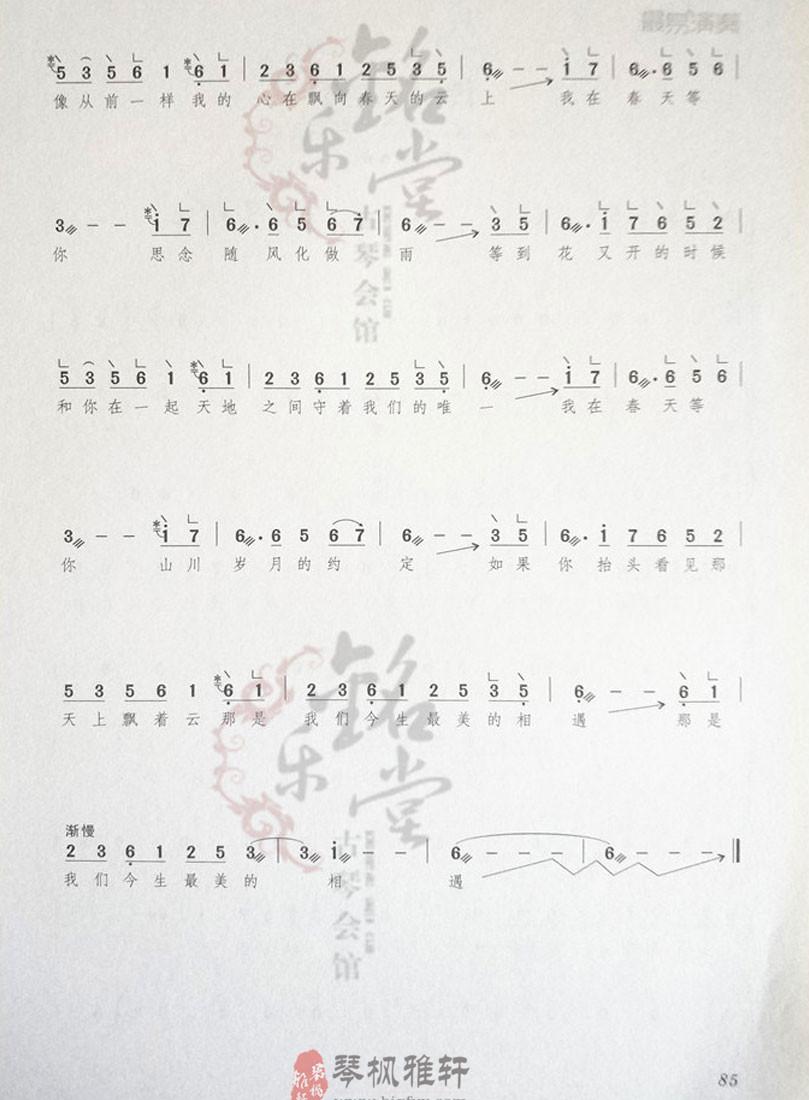 最易演奏
5 3 5 6 1 6 1 | 2 3 6 1 2 5 3 5 | 6 - - i 7 | 6 · 6 5 6 |
像从前一样我的 心在飘向春天的云 上 我在 春天等
3 - - i 7 | 6 · 6 5 6 7 | 6 - - 3 5 | 6 · i 7 6 5 2 |
你 思念 随 风化做 雨 等到 花 又开的时候
5 3 5 6 1 6 1 | 2 3 6 1 2 5 3 5 | 6 - - i 7 | 6 · 6 5 6 |
和你在一起天地 之间守着我们的唯 一 我在 春天等
3 - - i 7 | 6 · 6 5 6 7 | 6 - - 3 5 | 6 · i 7 6 5 2 |
你 山川 岁 月的约 定 如果 你 抬头看见那
5 3 5 6 1 6 1 | 2 3 6 1 2 5 3 5 | 6 - - 6 1 |
天上飘着云那是 我们今生最美的相 遇 那是
渐慢
2 3 6 1 2 5 3 | 3 i - - | 6 - - - | 6 - - - ‖
我们今生最美的 相 遇
铭乐堂
古琴会馆
铭乐堂
古琴会馆
琴枫雅轩
85